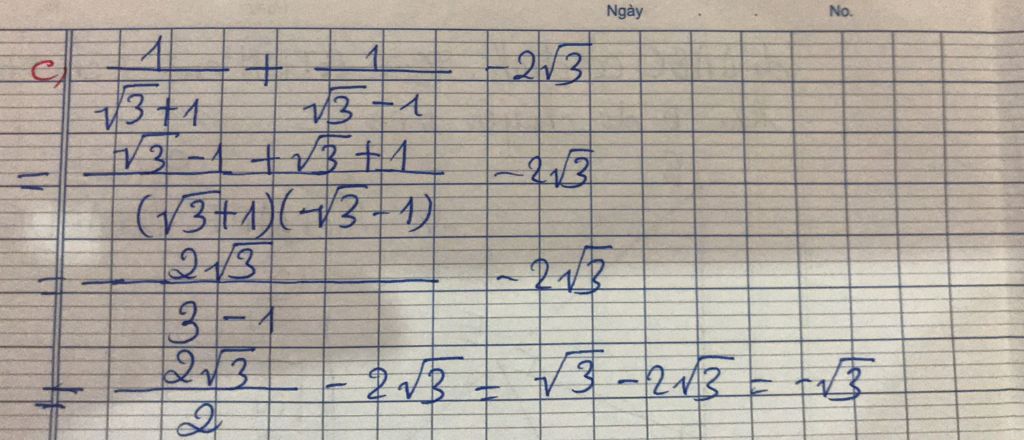 Ngày . . No.
c) 1/(√3+1) + 1/(√3-1) -2√3
= (√3-1+√3+1)/((√3+1)(√3-1)) -2√3
= 2√3/(3-1) -2√3
= 2√3/2 -2√3 = √3-2√3 = -√3